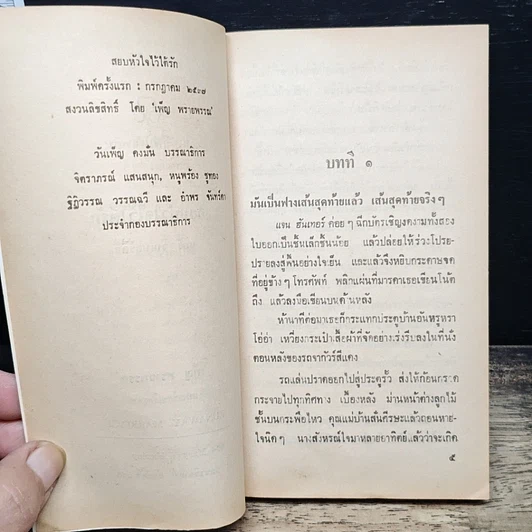 สยบหัวใจไว้ใต้รัก
พิมพ์ครั้งแรก : กรกฎาคม ๒๕๓๗
สงวนลิขสิทธิ์ โดย 'เพ็ญ พรายพรรณ'
วันเพ็ญ คงมั่น บรรณาธิการ
จิตราภรณ์ แสนสนุก, หนูพร้อง ธุทอง
ฐิฏิวรรณ วรรณฉวี และ อำพร จันทร์ดา
ประจำกองบรรณาธิการ
บทที่ ๑
มันเป็นฟางเส้นสุดท้ายแล้ว เส้นสุดท้ายจริงๆ
แจน ฮันเทอร์ ค่อยๆ ฉีกบัตรเชิญงดงามทั้งสอง
ใบออกเป็นชิ้นเล็กชิ้นน้อย แล้วปล่อยให้ร่วงโปรย-
ปรายลงสู่พื้นอย่างใจเย็น และแล้วจึงหยิบกระดาษจด
ที่อยู่ข้างๆ โทรศัพท์ พลิกแผ่นที่มารดาเธอเขียนโน้ต
ถึง แล้วลงมือเขียนบนด้านหลัง
ห้านาทีต่อมาเธอก็กระแทกประตูบ้านอันหรูหรา
โอ่อ่า เหวี่ยงกระเป๋าเสื้อผ้าที่จัดอย่างเร่งรีบลงในที่นั่ง
ตอนหลังของรถจากัวร์สีแดง
รถแล่นปราดออกไปสู่ประตูรั้ว ส่งให้ก้อนกรวด
กระจายไปทุกทิศทาง เบื้องหลัง ม่านหน้าต่างลูกไม้
ชั้นบนกระพือไหว คุณแม่บ้านสั่นศีรษะแล้วถอนหาย-
ใจนิดๆ นางสังหรณ์ใจมาหลายอาทิตย์แล้วว่าจะเกิด
๕